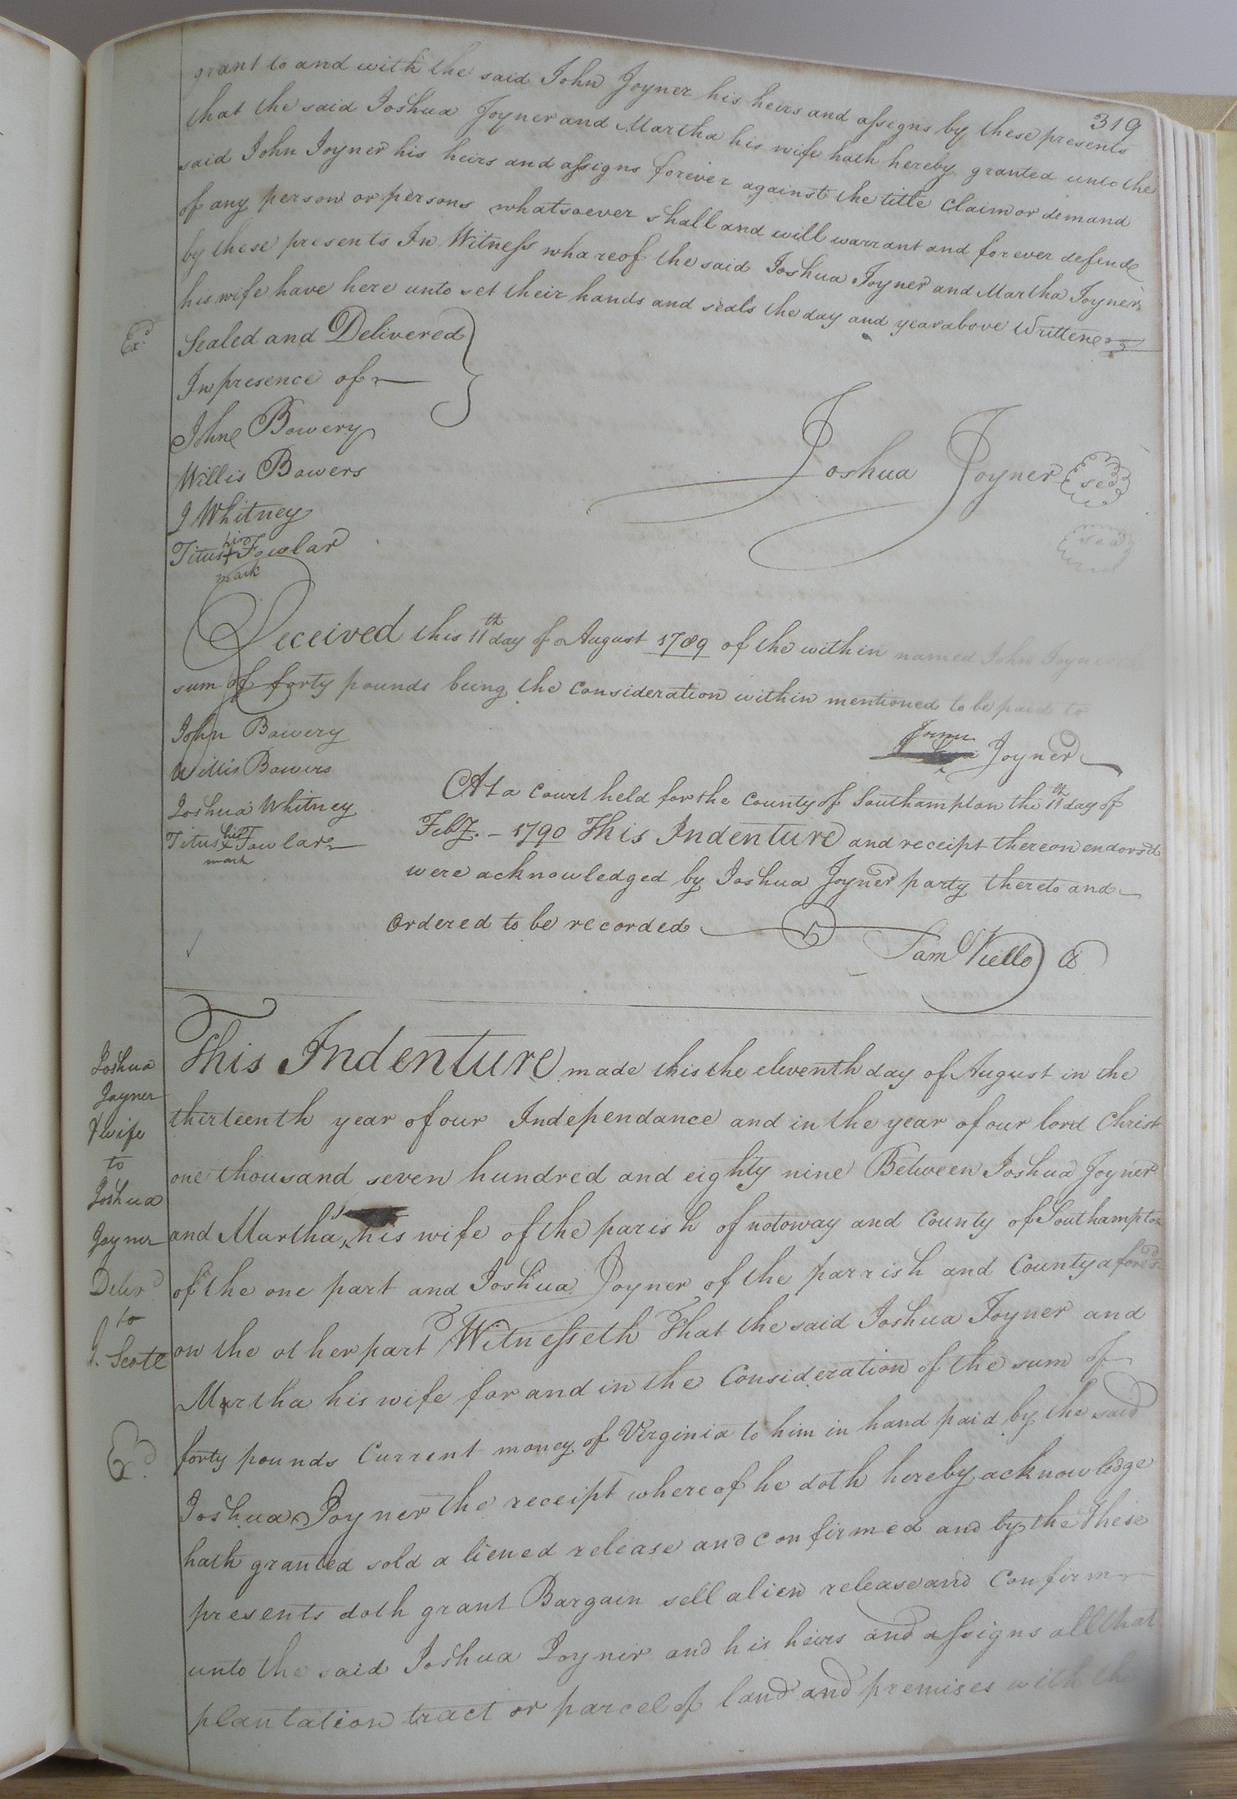 319
grant to and with the said John Joyner his heirs and assigns by these presents
that the said Joshua Joyner and Martha his wife hath hereby granted unto the
said John Joyner his heirs and assigns forever against the title Claim or demand
of any person or persons whatsoever shall and will warrant and forever defend
by these presents In Witness whareof the said Joshua Joyner and Martha Joyner
his wife have here unto set their hands and seals the day and year above Written
Exd
Sealed and Delivered
In presence of
John Bowery
Willis Bowers
J Whitney
Titus his Fowlar
mark
Joshua Joyner seal
seal
Received this 11th day of August 1789 of the within named John Joyner
sum of forty pounds being the Consideration within mentioned to be paid to
John Bowery
Willis Bowers
Joshua Whitney
Titus his Fowlar
mark
Joyner
At a Court held for the County of Southampton the 11th day of
Feby. - 1790 This Indenture and receipt thereon endorsd
were acknowledged by Joshua Joyner party thereto and
Ordered to be recorded
Sam Kello C
Joshua
Joyner
& wife
to
Joshua
Joyner
Delivd
to
J. Scott
Exd
This Indenture made this the eleventh day of August in the
thirteenth year of our Independance and in the year of our lord Christ
one thousand seven hundred and eighty nine Between Joshua Joyner
and Martha his wife of the parish of notoway and County of Southampton
of the one part and Joshua Joyner of the parrish and County aforesd
on the other part Witnesseth That the said Joshua Joyner and
Martha his wife for and in the Consideration of the sum of
forty pounds Current money of Virginia to him in hand paid by the said
Joshua Joyner the receipt whereof he doth hereby acknowledge
hath granted sold a liened release and confirmed and by the These
presents doth grant Bargain sell alien release and Confirm
unto the said Joshua Joyner and his heirs and assigns all that
plantation tract or parcel of land and premises with th